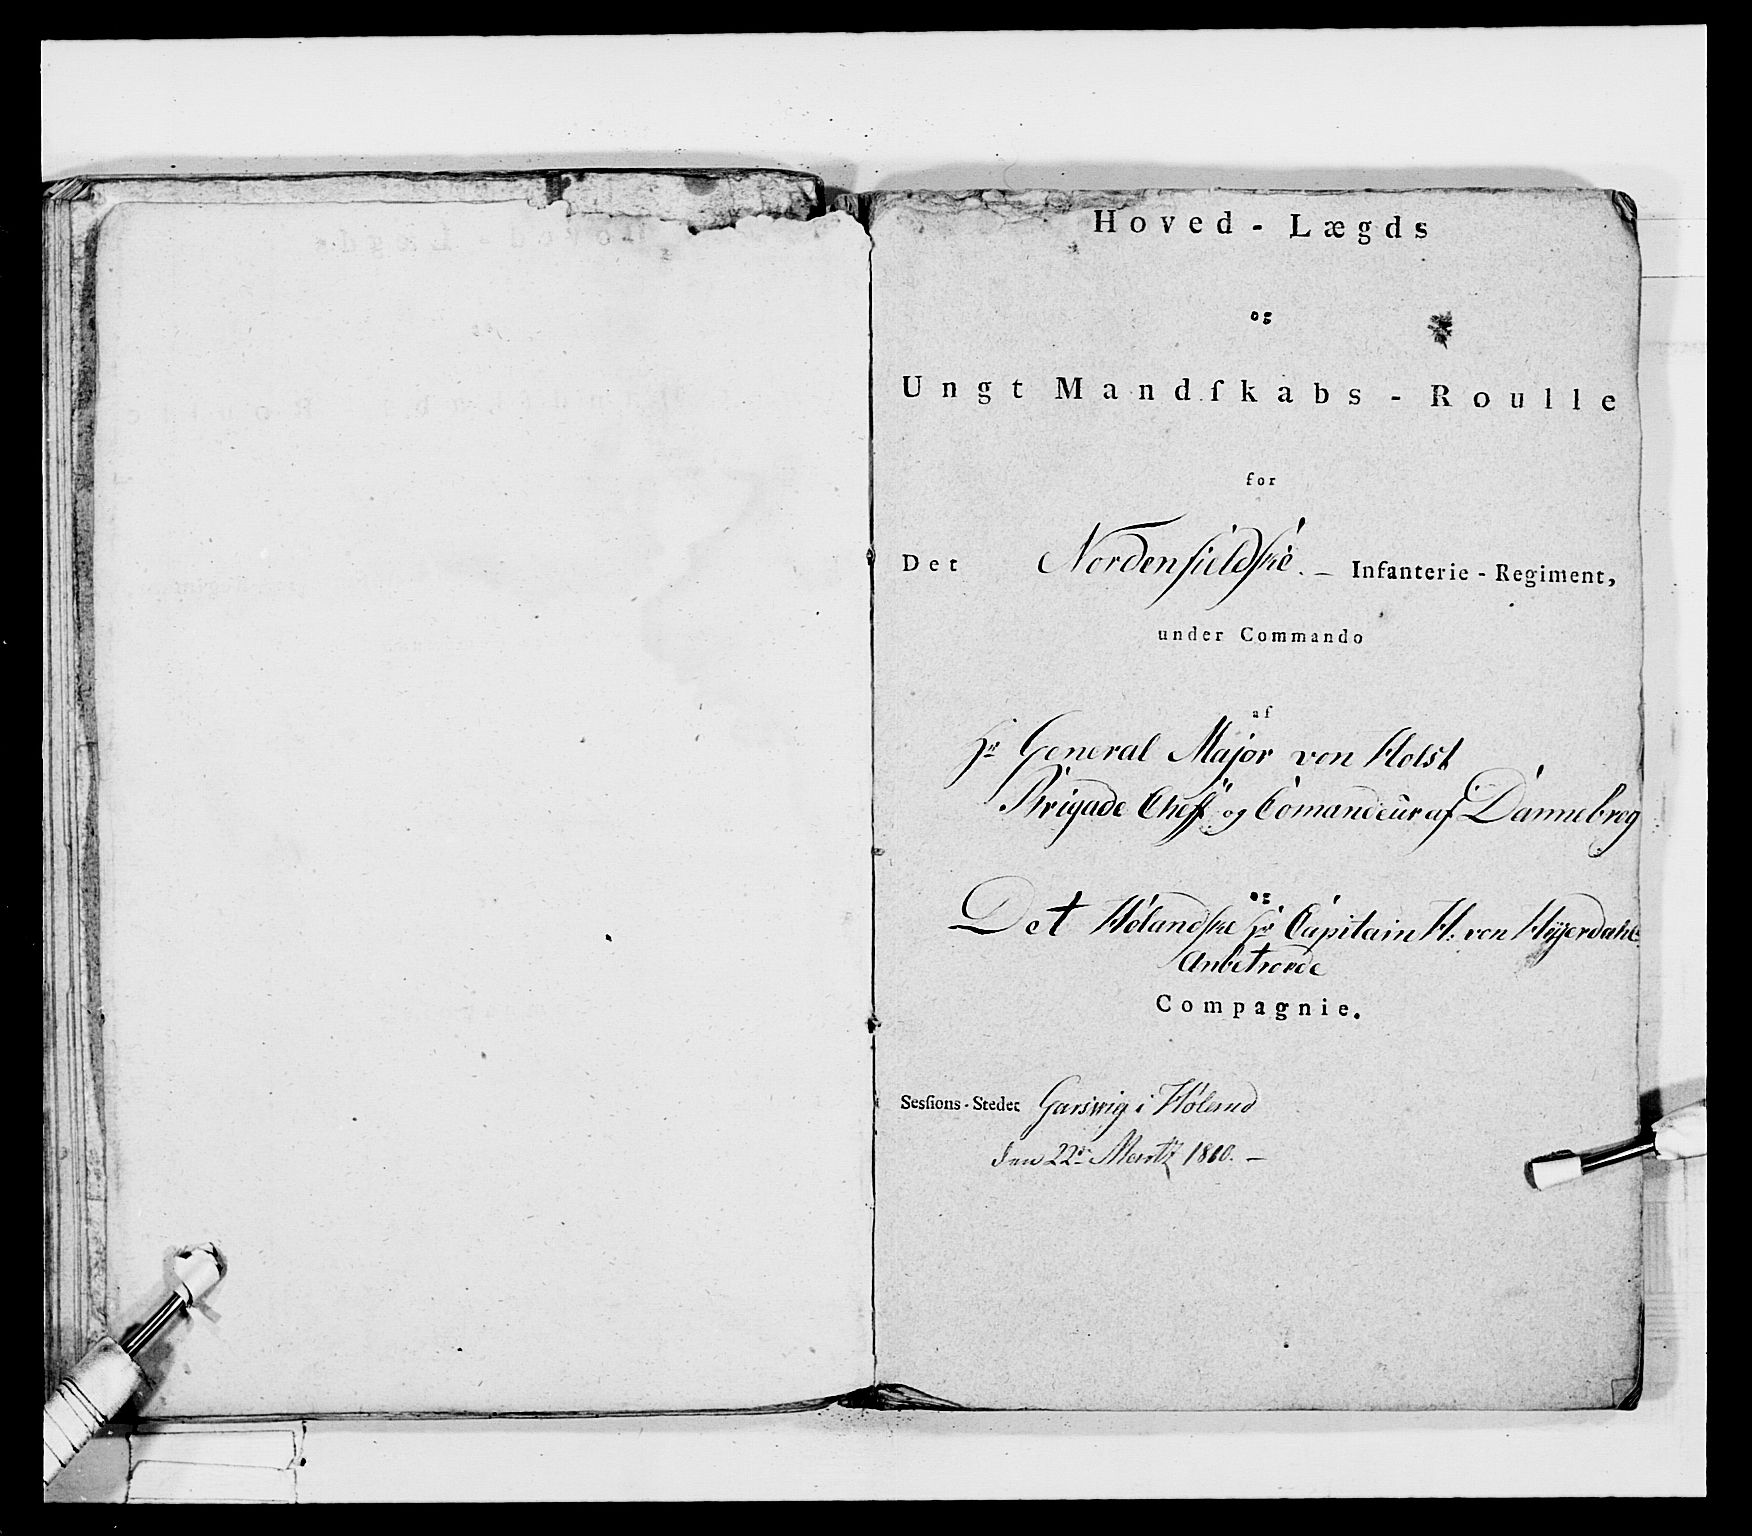 Hoved - Lægds
og
Ungt Mandſkabs - Roulle
for
Det Nordenfieldſke. – Infanterie - Regiment,
under Commando
af
Hr General Major von Holst
Brigade Cheff og Comandeur af Dannebrog
og
Det Hølandſke Hr Capitain H: von Hyerdahls
Anbetroede
Compagnie.
Sesſions - Stedet Garsvig i Høland
den 22de Martz 1810. –